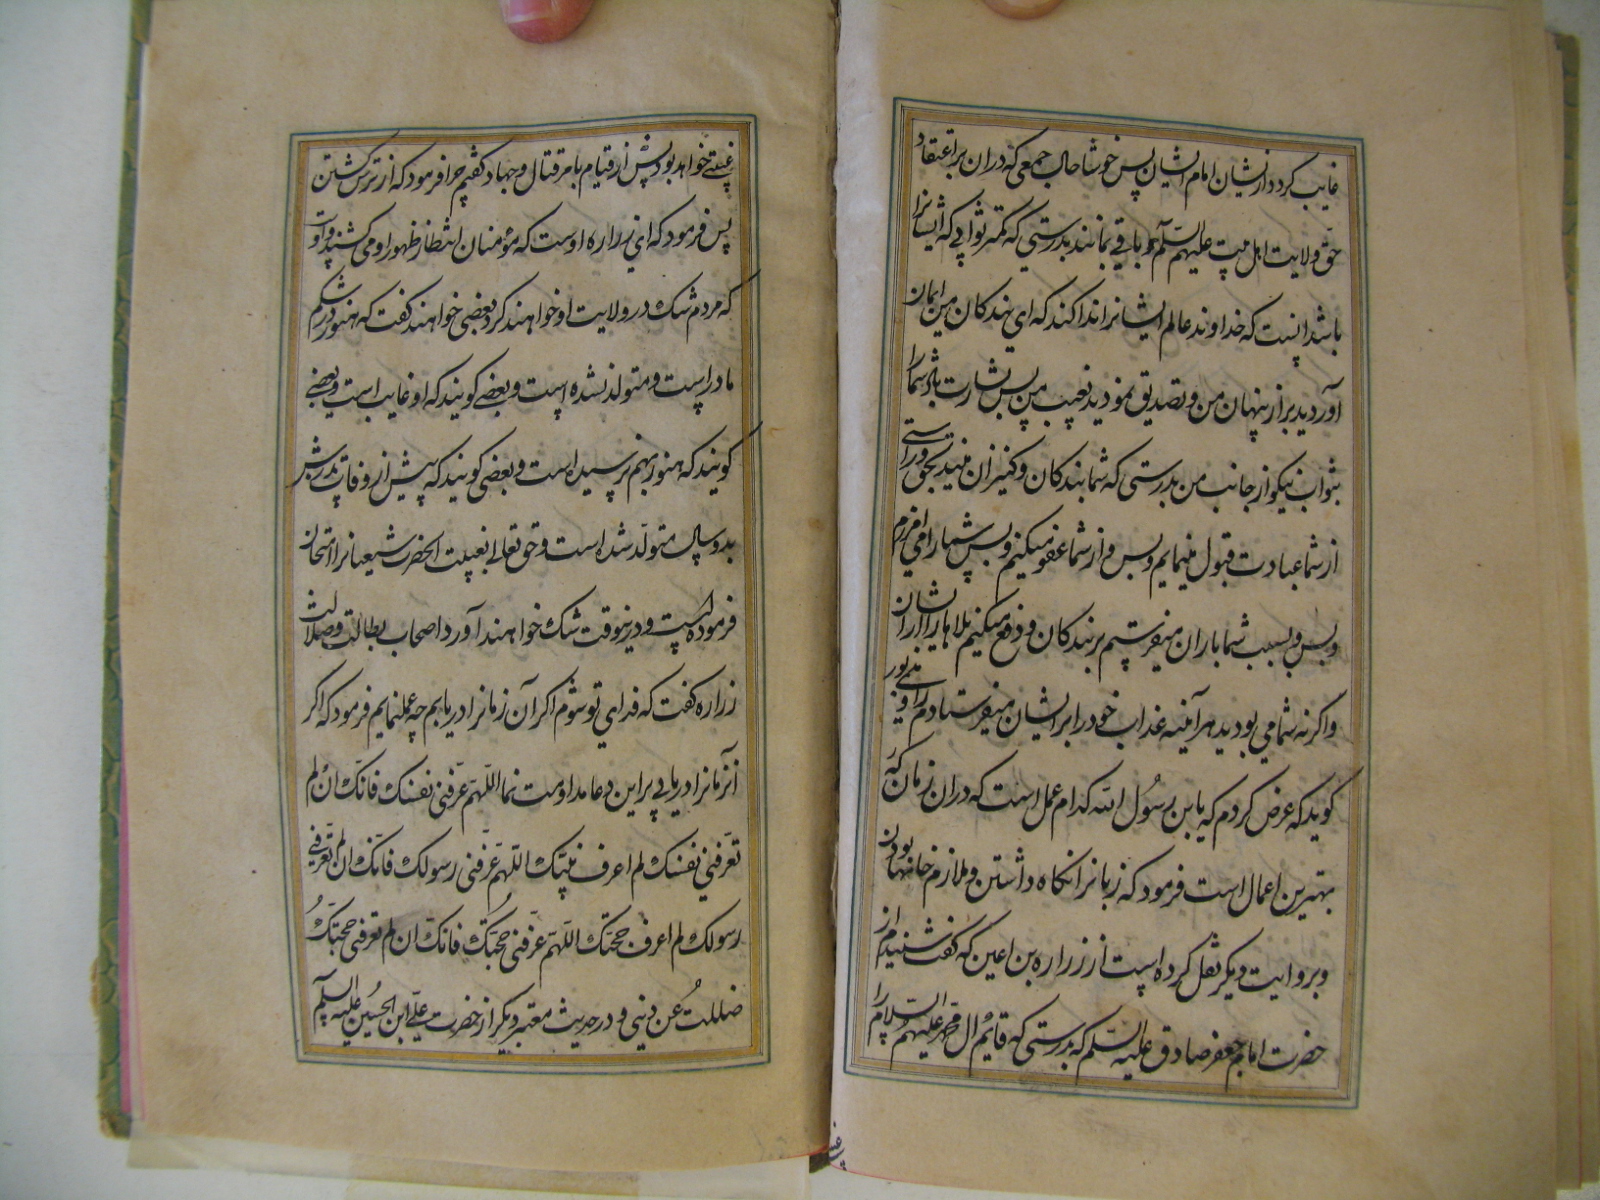 غایب کردد از یشان امام ایشان پس خوشا حال جمعی که دران بر اعتقاد
حق ولایت اهل بیت علیهم السلم باقی بمانند بدرستی که کمتر ثوابی که ایشانرا
باشد اینست که خداوند عالم ایشانرا ندا کند که ای بندکان من ایمان
آوردید براز پنهان من و تصدیق نمودید بغیب من پس بشارت باد شما را
بثواب نیکو از جانب من بدرستی که شما بندکان و کنیزان منید بحق و راستی
از شما عبادت قبول مینمایم و بس و از شما عفو میکنم و بس شما را می امرزم
و بس و بسبب شما باران میفرستیم بر بندکان و دفع میکنیم بلاها را از ایشان
و اکر نه شما می بودید هر آینه عذاب خود را بر ایشان میفرستادم راوی
کوید که عرض کردم که یا بن رسول الله کدام عمل است که دران زمان که
بهترین اعمال است فرمود که زبانرا نکاه داشتن و ملازم خانها بودن
و بروایت دیکر نقل کرده است از زراره بن اعین که کفت شنیدم از
حضرت امام جعفر صادق علیه السلم که بدرستی که قایم ال محمد علیهم السلام را
غیبتی
غیبتی خواهد بود پیش از قیام بامر قتال و جهاد کفتم چرا فرمود که از ترس کشتن
پس فرمود که ای زراره اوست که مؤمنان انتظار ظهور او می کشند و اوست
که مردم شک در ولایت او خواهند کرد بعضی خواهند کفت که هنوز در شکم
مادر است و متولد نشده است و بعضی کویند که او غایب است و بعضی
کویند که هنوز بهم نرسیده است و بعضی کویند که پیش از وفات پدرش
بدو سال متولد شده است و حق تعالی بغیبت انحضرت شیعیانرا امتحان
فرموده است و درینوقت شک خواهند آورد اصحاب بطالت و ضلالت
زراره کفت که فدای تو شوم اکر آن زمانرا دریابم چه عمل نمایم فرمود که اکر
آنزمانرا دریابی بر این دعا مداومت نما اللهم عرفنی نفسک فانک ان لم
تعرفنی نفسک لم اعرف نبیک اللهم عرفنی رسولک فانک ان لم تعرفنی
رسولک لم اعرف حجتک اللهم عرفنی حجتک فانک ان لم تعرفنی حجتک
ضللت عن دینی و در حدیث معتبر دیکر از حضرت علی ابن الحسین علیه السلم